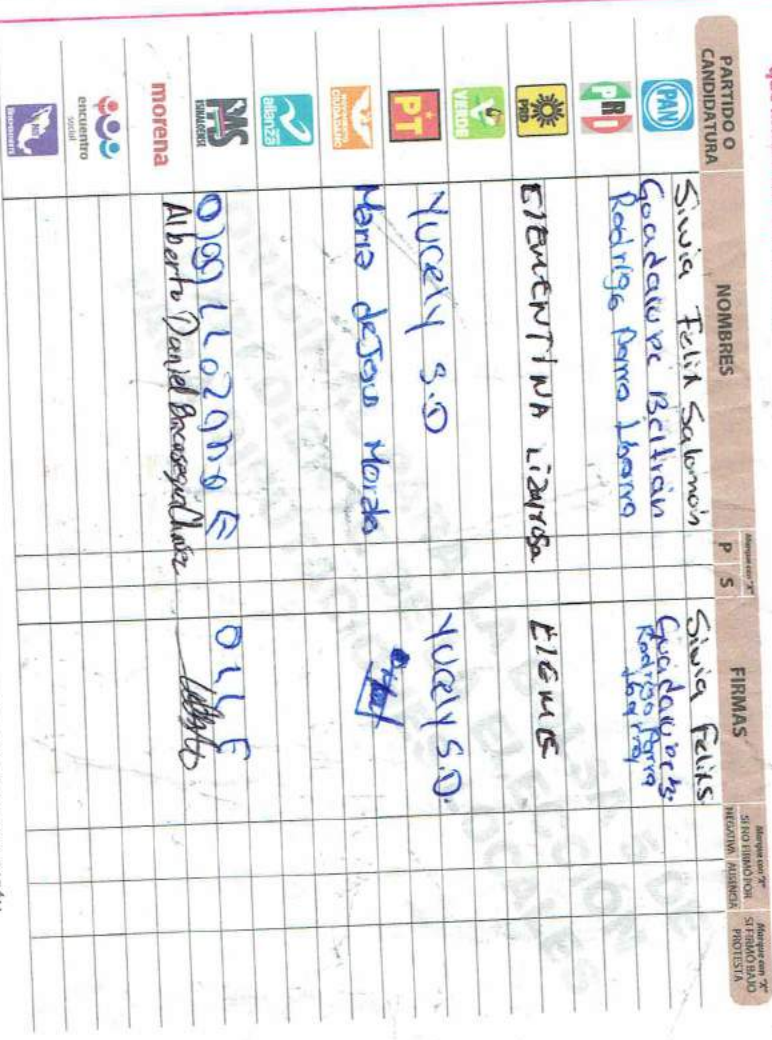 PARTIDO O CANDIDATURA
NOMBRES
Marque con "X"
P S
FIRMAS
Marque con "X" SI NO FIRMÓ POR
NEGATIVA AUSENCIA
Marque con "X" SI FIRMÓ BAJO PROTESTA
Silvia Felix Salomón Silvia Felix S
PAN Guadalupe Beltrán Guadalupe B.
Rodrigo Parra Ibarra Rodrigo Parra Ibarra
PRI
PRD ElEMENTINA LizArrosa ElEME
VERDE
PT Yucely S.O Yucely S.O.
MOVIMIENTO CIUDADANO María de Jesus
alianza
PAS SINALOENSE
morena Alberto Daniel
encuentro social